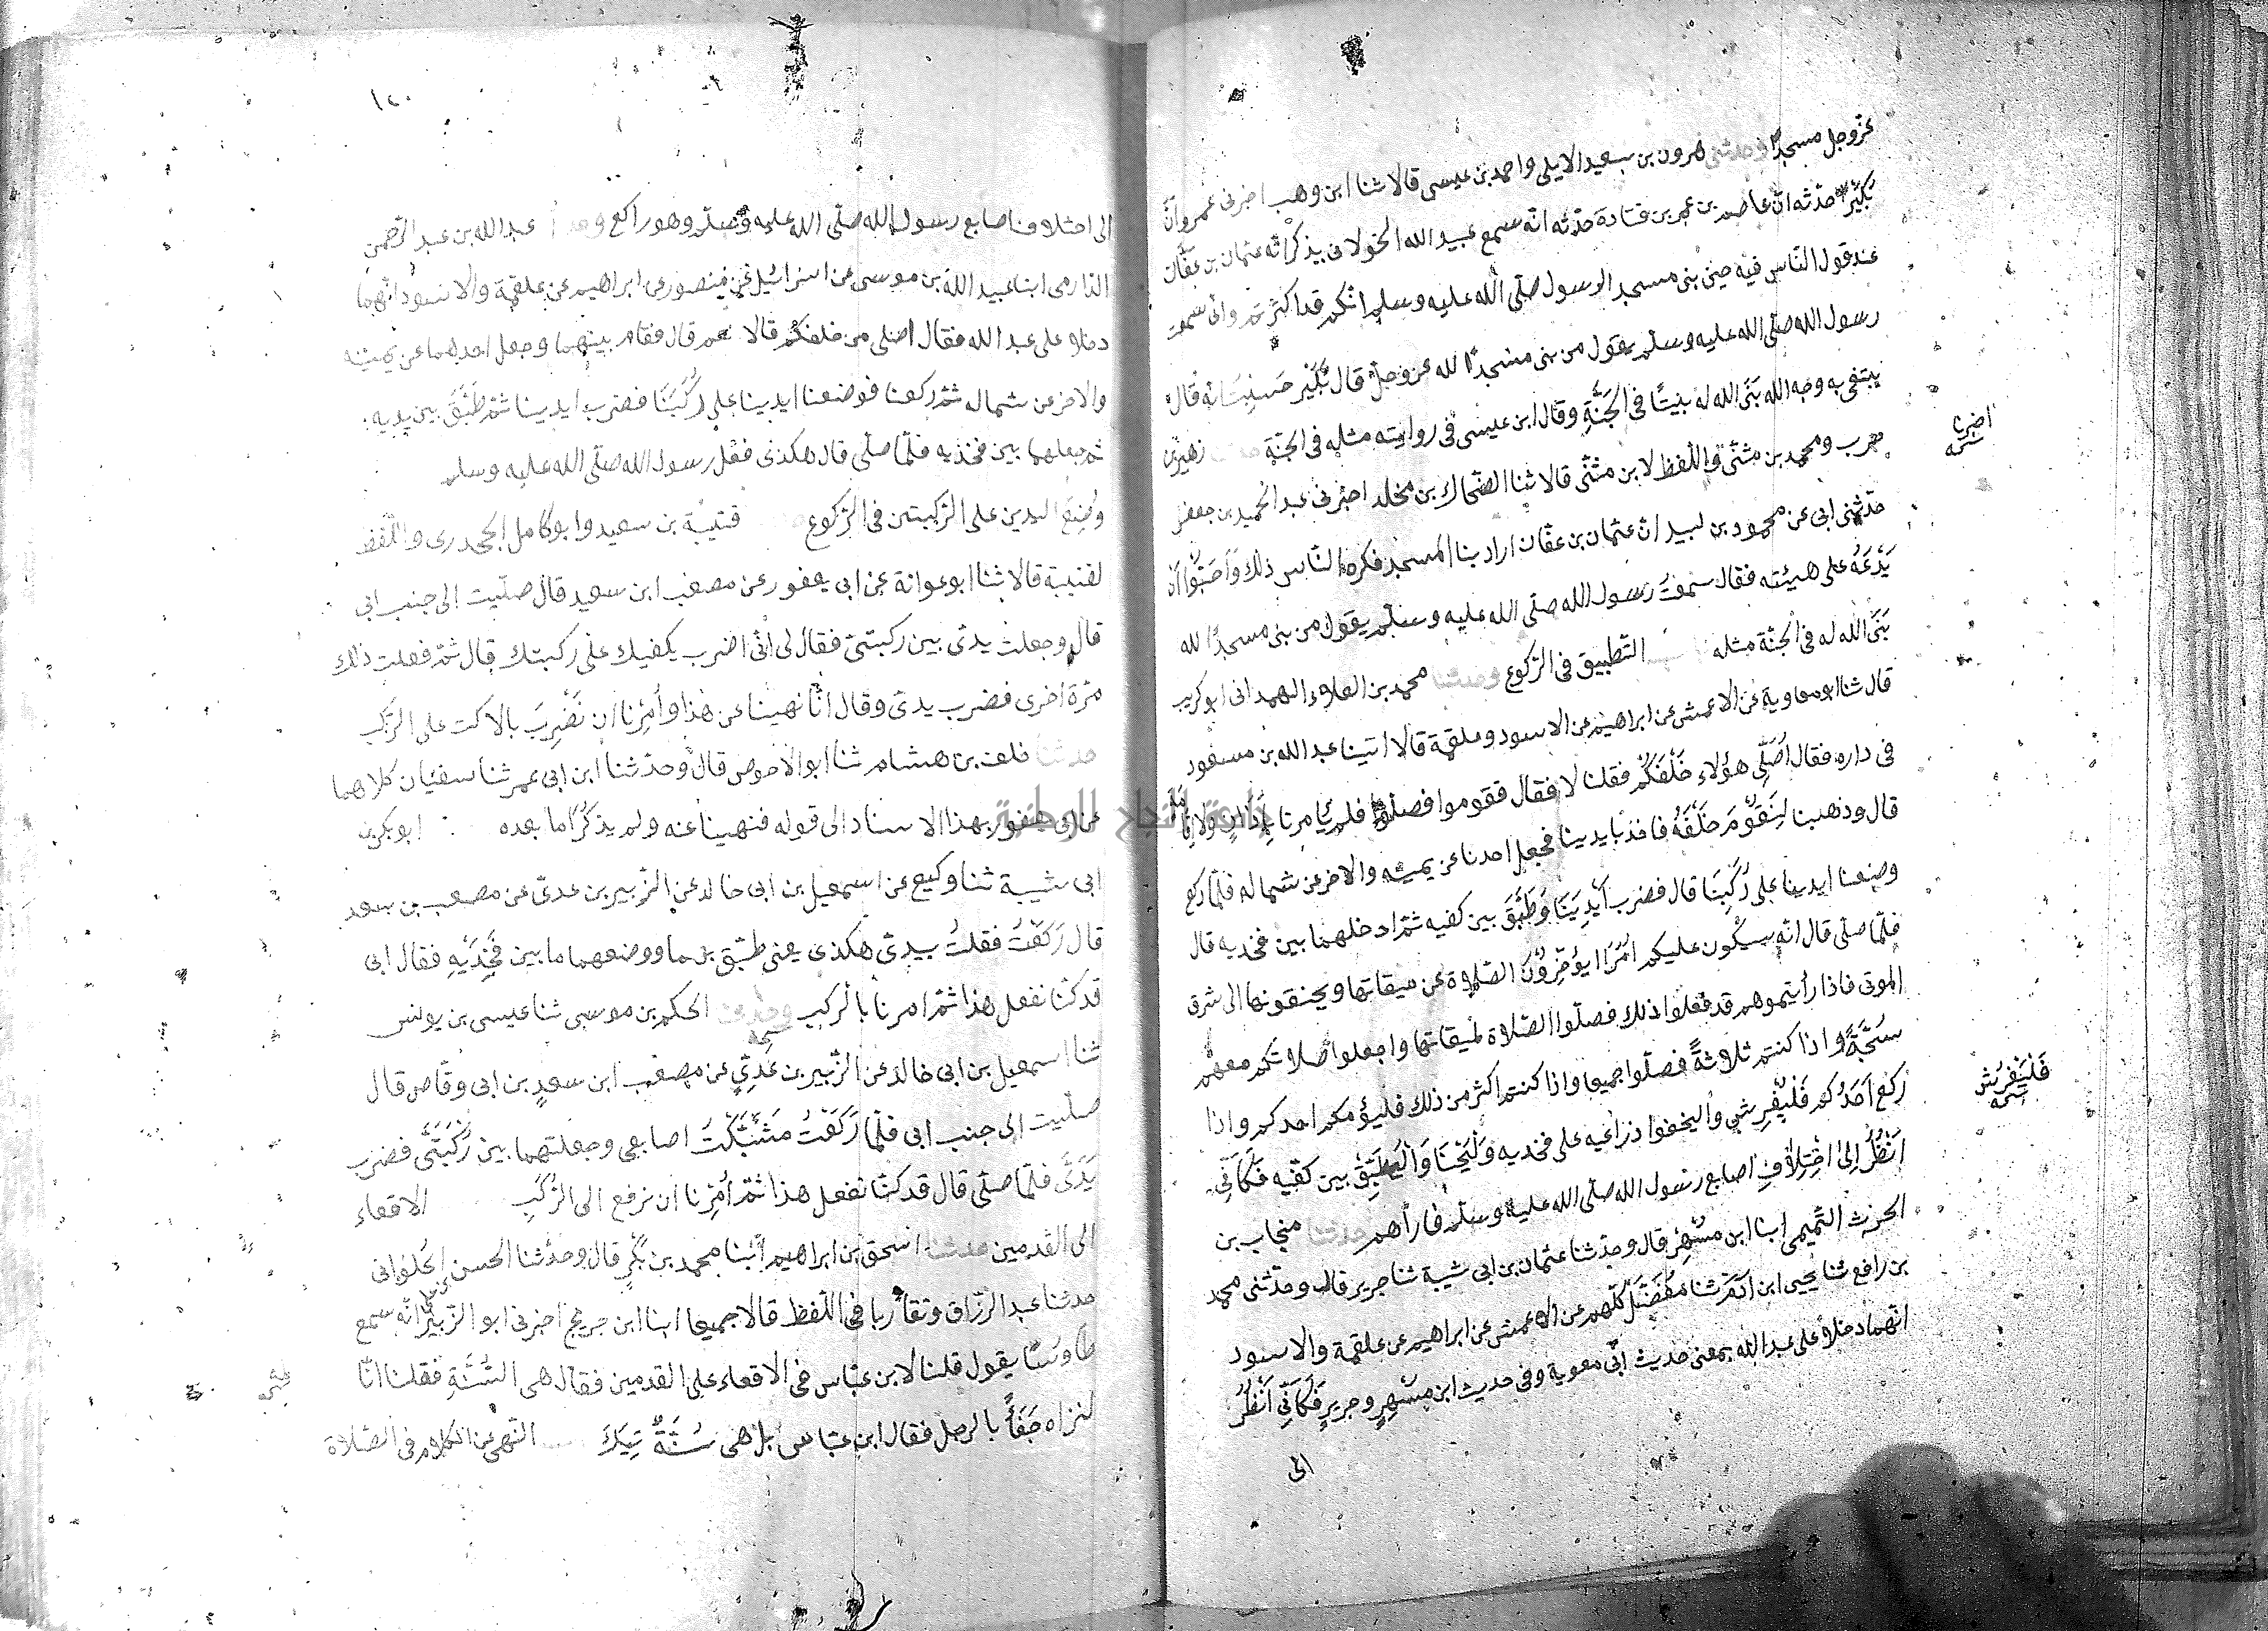 عزوجل مسجدًا وحدثني هرون بن سعيد الايلي واحمد بن عيسى قالا ثنا ابن وهب اخبرني عمرو انّ
بكيرًا حدّثه انّ عاصم بن عمر بن قتادة حدّثه انه سمع عبيد الله الخولاني يذكر انه عثمان بن عفّان
عند قول النّاس فيه حين بنى مسجد الرسول صلّى الله عليه وسلم انكم قد اكثرتم واني سمعت
رسول الله صلّى الله عليه وسلم يقول من بنى مسجدًا لله عزوجل قال بُكَيْر حسبت انه قال
يبتغي به وجه الله بَنَى الله له بيتًا في الجَنّةِ وقال ابن عيسى في روايته مثله في الجنّة زهير بن
حرب ومحمد بن مثنّى واللّفظ لابن مثنّى قالا ثنا الضّحاك بن مخلد اخبرني عبد الحميد بن جعفر
اخبرنا
حدّثني ابي عن محمود بن لبيد انّ عثمان بن عفّان اراد بنا المسجد فكره النّاس ذلك وَاَحَبّوا أن
يَدَعَهُ على هيئته فقال سمعتُ رسول الله صلّى الله عليه وسلم يقول من بنى مسجدًا لله
بَنَى الله له في الجنّة مثله التطبيق في الركوع وحدثنا محمد بن العلاء الهمداني ابو كريب
قال ثنا ابو معاوية عن الاعمش عن ابراهيم عن الاسود وعلقمة قالا اتينا عبد الله بن مسعود
في داره فقال اَصَلّى هؤلاء خَلْفَكُم فقلنا لا فقال فقوموا فصلّوا فلم يامرنا بِأَذَانٍ ولا اِقَامَةٍ
قال وذهبنا لِنَقُومَ خَلْفَهُ فاخذ بايدينا فجعل احدنا عن يمينه والاخر عن شماله فلمّا ركع
وضعنا ايدينا على رُكَبِنَا قال فضرب اَيْدِيَنَا وَطَبَّقَ بين كفيه ثمّ ادخلهما بين فخذيه قال
فلمّا صلّى قال انّه سيكون عليكم اُمَرَا يؤخّرون الصّلوة عن ميقاتها ويخنقونها الى شرق
الموتى فاذا رأيتموهم قد فعلوا ذلك فصلّوا الصّلاة لميقاتها واجعلوا صلاتكم معهم
سُبْحَةً واذا كنتم ثلاثةً فصلّوا جميعا واذا كنتم اكثر من ذلك فليؤمكم احدكم واذا
ركع اَحَدُكُم فَلْيُفْرِشْ ذراعيه على فخذيه وَلْيَحْنَا وَلْيُطَبِّقْ بين كفّيه فَكَاَنِّي
فَلْيَفْرُش
اَنْظُرُ اِلىٰ اخْتِلاَفِ اصابع رسول الله صلّى الله عليه وسلم فاراهم حدثنا منجاب بن
الحرث التّميمي ابنا ابن مُسْهِر قال وحدّثنا عثمان بن ابي شيبة ثنا جرير قال وحدّثني محمد
بن رافع ثنا يحيى ابن اٰدَمَ ثنا مُفَضَّل كلّهم عن الاعمش عن ابراهيم عن علقمة والاسود
انّهما دخلا على عبد الله بمعنى حديث ابي معوية وفي حديث ابن مسْهِرٍ وجريرٍ فَكَاَنِّي اَنْظُرُ
الى
١٢٠
الى اختلاف اصابع رسول الله صلّى الله عليه وسلم وهو راكع عبد الله بن عبد الرّحمن
الدّارمي ابنا عبيد الله بن موسى عن اسرائيل عن منصور عن ابراهيم عن علقمة والاسود انّهما
دخلا على عبد الله فقال اصلى من خلفكم قالا نعم قال فقام بينهما وجعل احدهما عن يمينه
والاخر عن شماله ثمّ ركعنا فوضعنا ايدينا على رُكَبِنَا فضرب ايدينا ثمّ طَبَّقَ بين يديه
ثم جعلهما بين فخذيه فلمّا صلّى قال هكذى فعل رسول الله صلّى الله عليه وسلم
وَضْعِ اليدين على الرّكبتين في الرّكوع قتيبة بن سعيد وابو كامل الجحدري واللّفظ
لقتيبة قالا ثنا ابو عوانة عن ابي يعفور عن مصعب ابن سعيد قال صلّيت الى جنب ابي
قال وجعلت يديّ بين ركبتيّ فقال لي أبي اضرب بكفيك على ركبتك قال ثمّ فعلت ذلك
مرّة اخرى فضرب يديّ وقال انّا نهينا عن هذا وأُمِرْنا ان نَضْرِبَ بالاكف على الرّكب
حدثنا خلف بن هشام ثنا ابو الاحوص قال وحدّثنا ابن ابي عمر ثنا سفيان كلاهما
عن ابي يعفور بهذا الاسناد الى قوله فنهينا عنه ولم يذكُرا ما بعده ابو بكر بن
ابي شيبة ثنا وكيع عن اسمعيل بن ابي خالد عن الزّبير بن عديّ عن مصعب بن سعد
قال رَكَعْتُ فقلتُ بيديّ هكذى يعني طبّق بهما ووضعهما ما بين فَخِذَيْهِ فقال ابي
قد كنّا نفعل هذا ثمّ امرنا بالركب وحدثني الحكم بن موسى ثنا عيسى بن يونس
ثنا اسمعيل بن ابي خالد عن الزّبير بن عَدِيّ عن مصعب ابن سعدٍ بن ابي وقاص قال
صلّيت الى جنب ابي فلمّا رَكَعْتُ شَبَّكْتُ اصابعي وجعلتهما بين رُكْبَتَيَّ فضرب
يَدَيَّ فلمّا صلّى قال قد كنّا نفعل هذا ثمّ اُمِرْنا ان نرفع الى الرُّكَبِ الاقعاء
الى القدمين حدثنا اسحق بن ابراهيم اَبْنا محمد بن بَكْرٍ قال وحدّثنا الحسن الحُلواني
حدثنا عبد الرزّاق وتقاربا في اللّفظ قالا جميعا ابنا ابن جريج اخبرني ابو الزّبير انّه سمع
طاوسًا يقول قلنا لابن عبّاس في الاقعاء على القدمين فقال هي السُّنَّةِ فقلنا انّا
لنراه جَفَأً بالرجل فقال ابن عبّاس بل هي سُنَّةُ نَبِيّكَ النّهي عن الكلام في الصّلاة
جامعة النجاح الوطنية